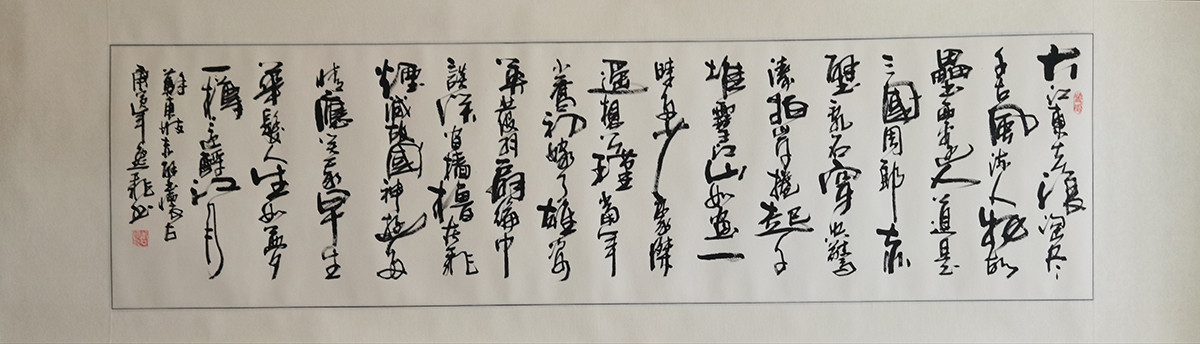 大江東去浪淘盡
千古風流人物故
壘西邊人道是
三國周郎赤
壁亂石穿空驚
濤拍岸捲起千
堆雪江山如畫一
時多少豪傑
遙想公瑾當年
小喬初嫁了雄姿
英發羽扇綸巾
談笑間檣櫓灰飛
煙滅故國神遊多
情應笑我早生
華髮人生如夢
一樽還酹江月
蘇東坡赤壁懷古